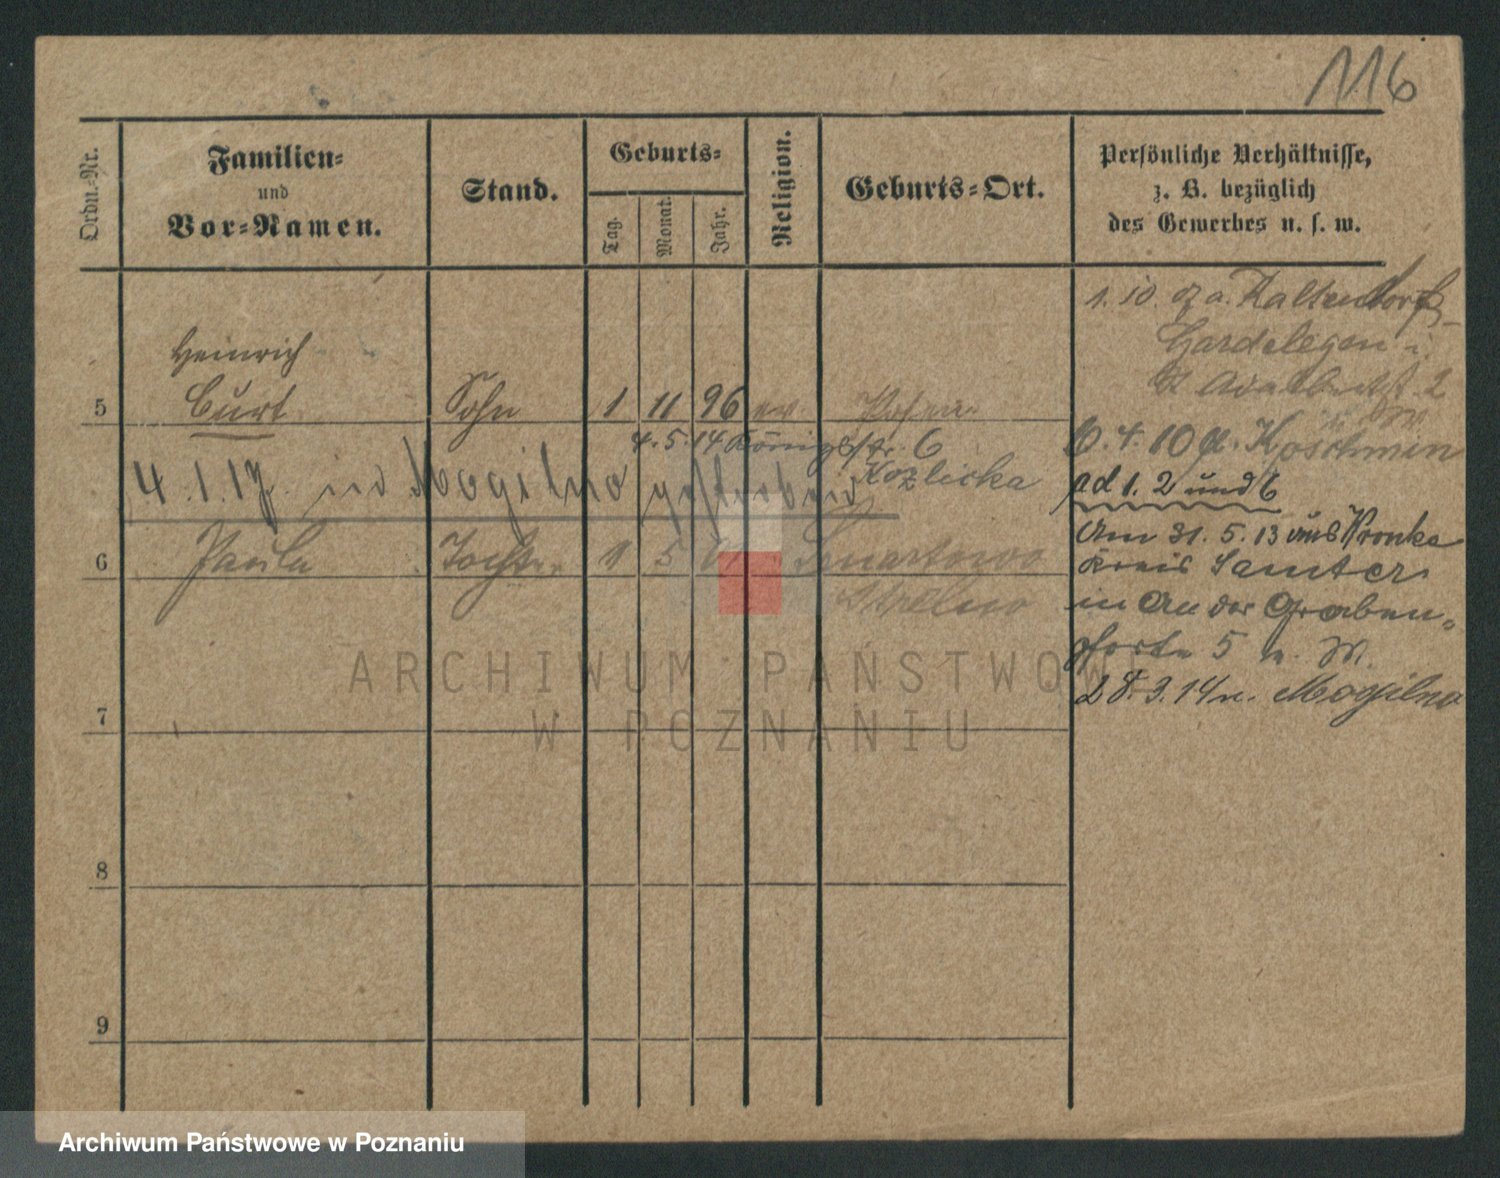 116
Ordn.-Nr.
Familien-
und
Vor-Namen.
Stand.
Geburts-
Tag.
Monat.
Jahr.
Religion.
Geburts-Ort.
Persönliche Verhältnisse,
z. B. bezüglich
des Gewerbes u. s. w.
1. 10. a. Kaltendorf
Gardelegen i.
Heinrich
5 Curt Sohn 1 11 96 ev. Posen
4. 5. 14 Königstr. 6
Kozlicka
4. 1. 17. in Mogilno gestorben
6 Paula Tochter 1 5
Strelno
6. 4. 10 a. Koschmin
ad 1. 2 und 6
Am 31. 5. 13 aus Wronke
Kreis Samter
in An der Graben-
pforte 5 n. W.
28. 3. 14 n. Mogilno
7
8
9
ARCHIWUM PAŃSTWOWE
W POZNANIU
Archiwum Państwowe w Poznaniu